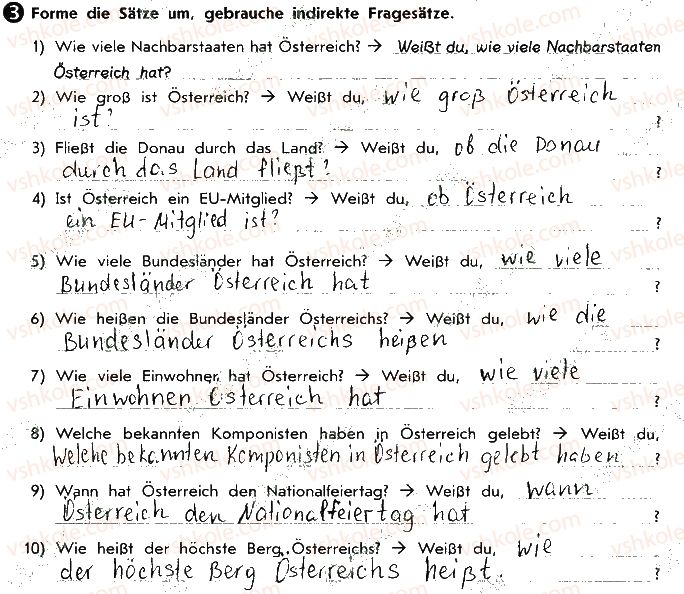 3 Forme die Sätze um, gebrauche indirekte Fragesätze.
1) Wie viele Nachbarstaaten hat Österreich? → Weißt du, wie viele Nachbarstaaten
Österreich hat?
2) Wie groß ist Österreich? → Weißt du, wie groß Österreich
ist? ?
3) Fließt die Donau durch das Land? → Weißt du, ob die Donau
durch das Land fließt? ?
4) Ist Österreich ein EU-Mitglied? → Weißt du, ob Österreich
ein EU-Mitglied ist? ?
5) Wie viele Bundesländer hat Österreich? → Weißt du, wie viele
Bundesländer Österreich hat ?
6) Wie heißen die Bundesländer Österreichs? → Weißt du, wie die
Bundesländer Österreichs heißen ?
7) Wie viele Einwohner hat Österreich? → Weißt du, wie viele
Einwohner Österreich hat ?
8) Welche bekannten Komponisten haben in Österreich gelebt? → Weißt du,
welche bekannten Komponisten in Österreich gelebt haben ?
9) Wann hat Österreich den Nationalfeiertag? → Weißt du, wann
Österreich den Nationalfeiertag hat ?
10) Wie heißt der höchste Berg Österreichs? → Weißt du, wie
der höchste Berg Österreichs heißt. ?
vshkole.com